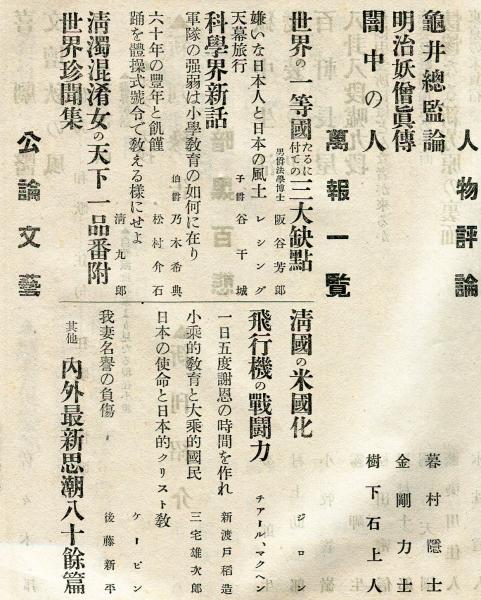 人物評論
龜井總監論 暮村隱士
明治妖僧眞傳 金剛力士
闇中の人 樹下石上人
萬報一覽
世界の一等國たるに付ての三大缺點 男爵法學博士 阪谷芳郎
嫌いな日本人と日本の風土 レシング
天幕旅行 子爵 谷干城
科學界新話
軍隊の强弱は小學敎育の如何に在り 伯爵 乃木希典
六十年の豐年と飢饉 松村介石
踊を體操式號令で敎える樣にせよ 淸九郎
淸濁混淆女の天下一品番附
世界珍聞集
淸國の米國化 ジロン
飛行機の戰鬪力 チアール、マクヘン
一日五度謝恩の時間を作れ 新渡戸稻造
小乘的敎育と大乘的國民 三宅雄次郎
日本の使命と日本的クリスト敎 ケービン
我妻名譽の負傷 後藤新平
其他 內外最新思潮八十餘篇
公論文藝